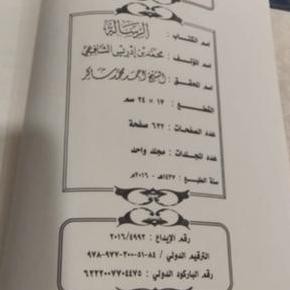 اسم الكتاب : الرسالة
اسم المؤلف : محمد بن إدريس الشافعي
اسم المحقق : الشيخ أحمد محمد شاكر
القطع : ١٧ × ٢٤ سم
عدد الصفحات : ٦٣٢ صفحة
عدد المجلدات : مجلد واحد
سنة الطبع : ١٤٣٧هـ - ٢٠١٦م
رقم الإيداع : ٢٠١٦/٤٩٩٢
الترقيم الدولي : ٩٧٨-٩٧٧-٢٠٠-٥١-٨٤
رقم الباركود الدولي : ٦٢٢٢٠٠٧٧٠٤٤٧٥